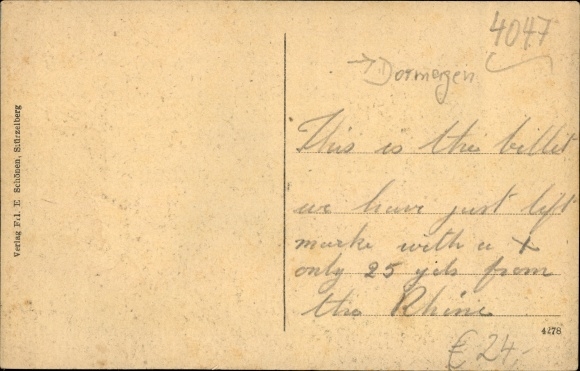 4047
→ Dormagen
This is the billet
we have just left
marke with a x
only 25 yds from
the Rhine
4278
€ 24,-
Verlag Frl. E. Schönen, Stürzelberg